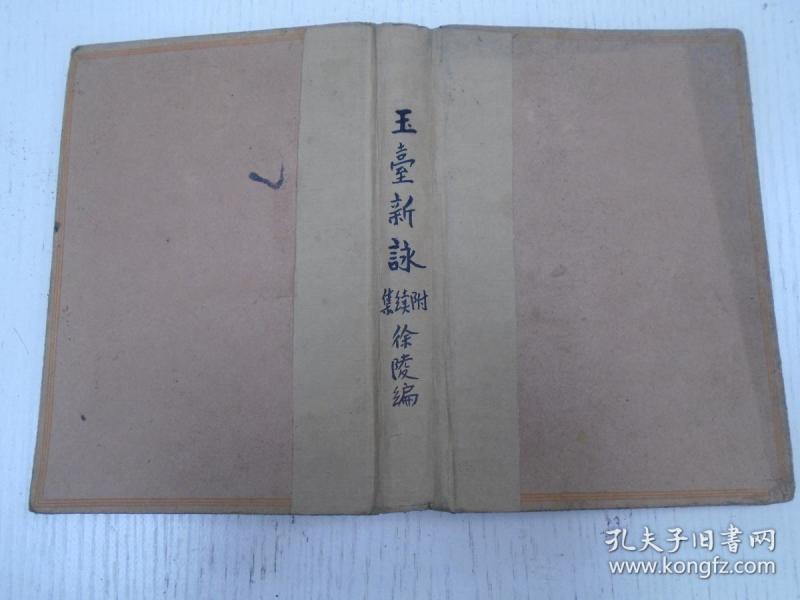 玉臺新詠
附续集
徐陵编
孔夫子旧书网
www.kongfz.com